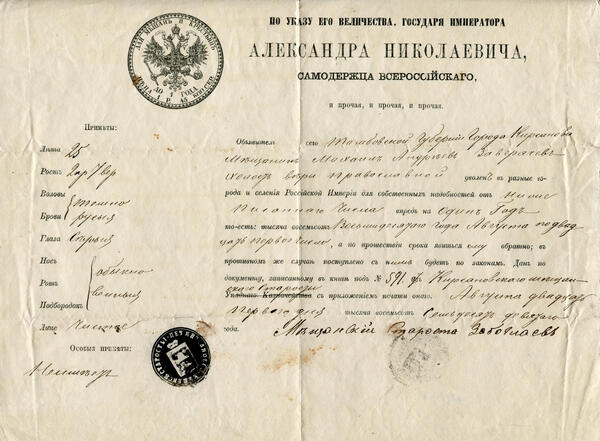 ДЛЯ МѢЩАНЪ И КРЕСТЬЯНЪ
ДО 1 ГОДА
ЦѢНА 1 Р.
ПО УКАЗУ ЕГО ВЕЛИЧЕСТВА, ГОСУДАРЯ ИМПЕРАТОРА
АЛЕКСАНДРА НИКОЛАЕВИЧА,
САМОДЕРЖЦА ВСЕРОССІЙСКАГО,
и прочая, и прочая, и прочая.
Примѣты:
Лѣта 25
Ростъ 2 ар 7 вер
Волосы
Брови
темно
русыя
Глаза Сѣрые
Носъ
Ротъ
Подбородокъ
обыкно
венные
Лице Чистое
Особыя примѣты:
Обыватель сего Тамбовской Губерніи Города Кирсанова
Мѣщанинъ Михаилъ Андреевъ
Холостъ вѣры Православной уволенъ въ разные го-
рода и селенія Россійской Имперіи для собственныхъ надобностей отъ ниже
писаннаго числа впредь на Одинъ Годъ
то-есть: тысяча восемьсотъ Восьмидесятаго года Августа по двад
цать первое число, а по прошествіи срока явиться ему обратно; въ
противномъ же случаѣ поступлено съ нимъ будетъ по законамъ. Данъ по
документу, записанному въ книгѣ подъ № 591. Кирсановскаго мѣщан
скаго Старосты съ приложеніемъ печати онаго. Августа двадцать
перваго дня тысяча восемьсотъ Семьдесятъ девятаго
года. Мѣщанскій Староста